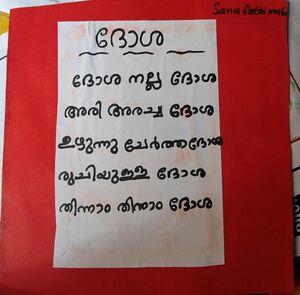 Sana fathima
ദോശ
ദോശ നല്ല ദോശ
അരി അരച്ച ദോശ
ഉഴുന്നു ചേർത്തദോശ
രുചിയുള്ള ദോശ
തിന്നാം തിന്നാം ദോശ